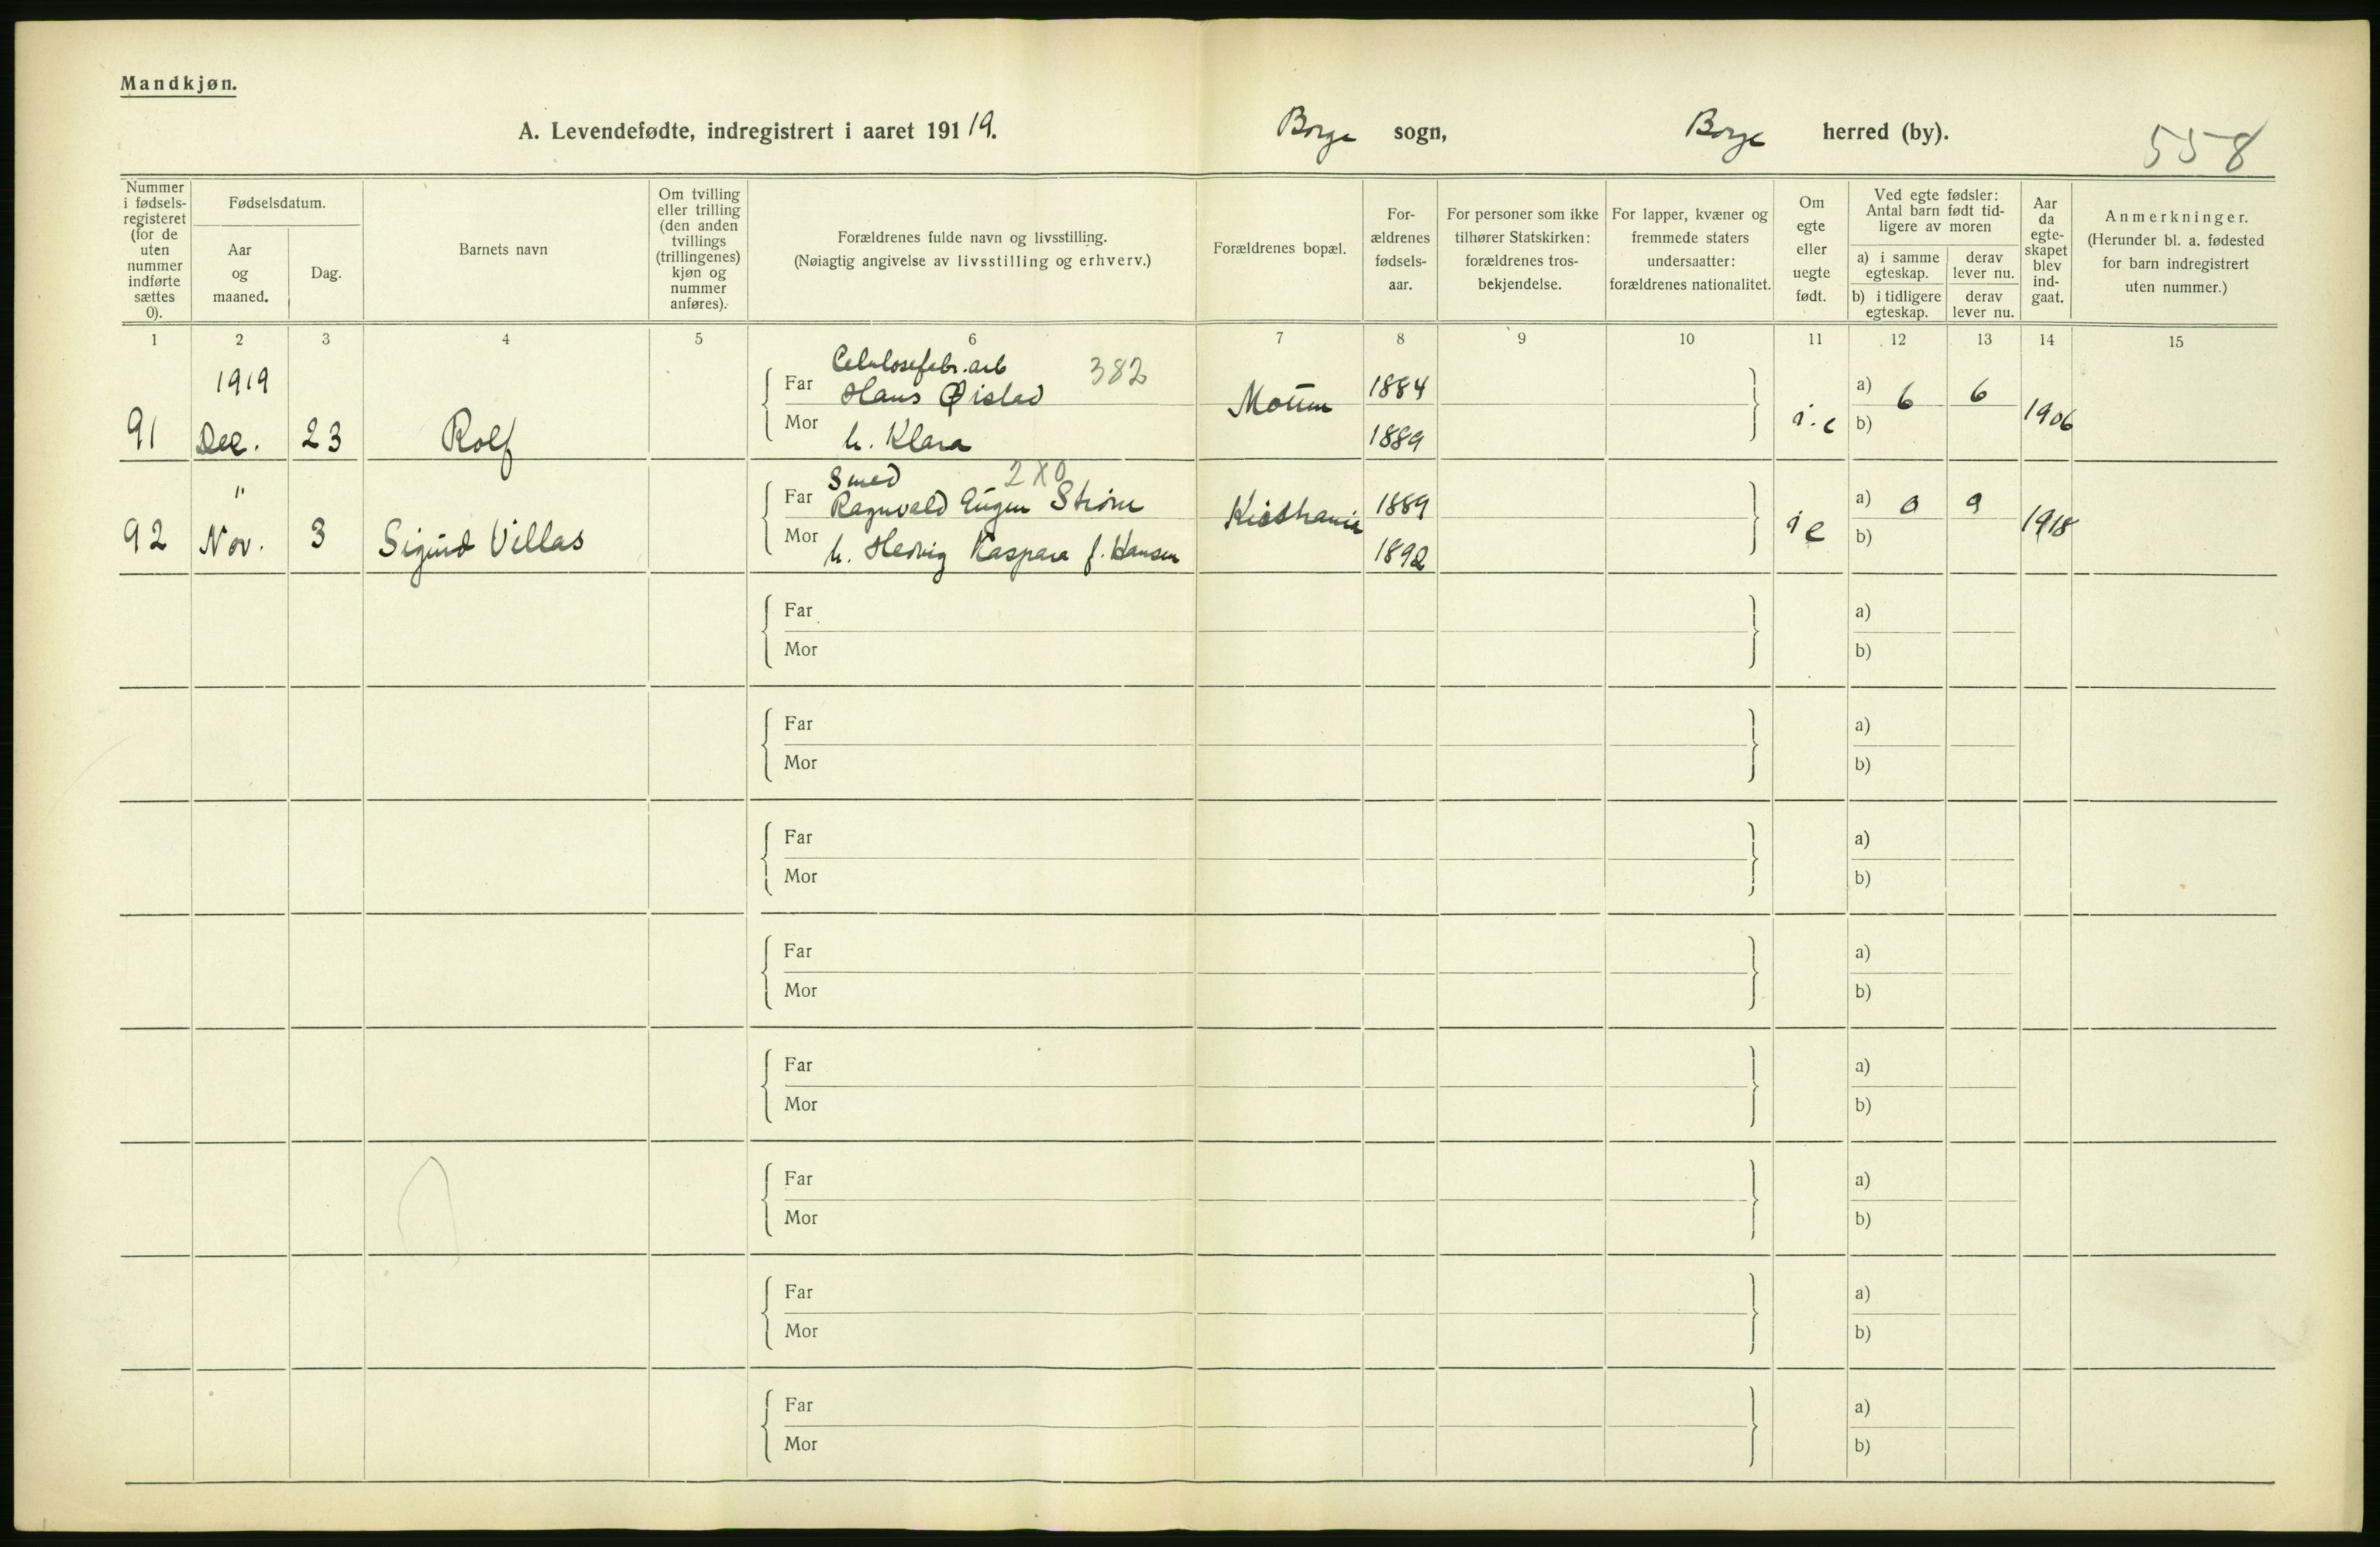 Mandkjøn.
A. Levendefødte, indregistrert i aaret 19119. Borge sogn, Borge herred (by).
558
Nummer i fødsels-registeret (for de uten nummer indførte sættes 0).
Fødselsdatum.
Aar og maaned.
Dag.
Barnets navn
Om tvilling eller trilling (den anden tvillings (trillingenes) kjøn og nummer anføres).
Forældrenes fulde navn og livsstilling.
(Nøiagtig angivelse av livsstilling og erhverv.)
Forældrenes bopæl.
For-ældrenes fødsels-aar.
For personer som ikke tilhører Statskirken: forældrenes tros-bekjendelse.
For lapper, kvæner og fremmede staters undersaatter: forældrenes nationalitet.
Om egte eller uegte født.
Ved egte fødsler: Antal barn født tid-ligere av moren
a) i samme egteskap.
derav lever nu.
b) i tidligere egteskap.
derav lever nu.
Aar da egte-skapet blev ind-gaat.
Anmerkninger.
(Herunder bl. a. fødested for barn indregistrert uten nummer.)
1 2 3 4 5 6 7 8 9 10 11 12 13 14 15
1919
Celulosefabr. arb 382
Far Hans Øislad 1884 a) 6 6
91 Dec. 23 Rolf Mor h. Klara 1889 i.e b) 1906
" Smed 2X0
Far Ragnvald Eugen Strøm 1889 a) 0 0
92 Nov. 3 Sigurd Villas Mor h. Hedvig Kaspara f. Hansen Kristhania 1892 i e b) 1918
Far a)
Mor b)
Far a)
Mor b)
Far a)
Mor b)
Far a)
Mor b)
Far a)
Mor b)
Far a)
Mor b)
Far a)
Mor b)
Far a)
Mor b)